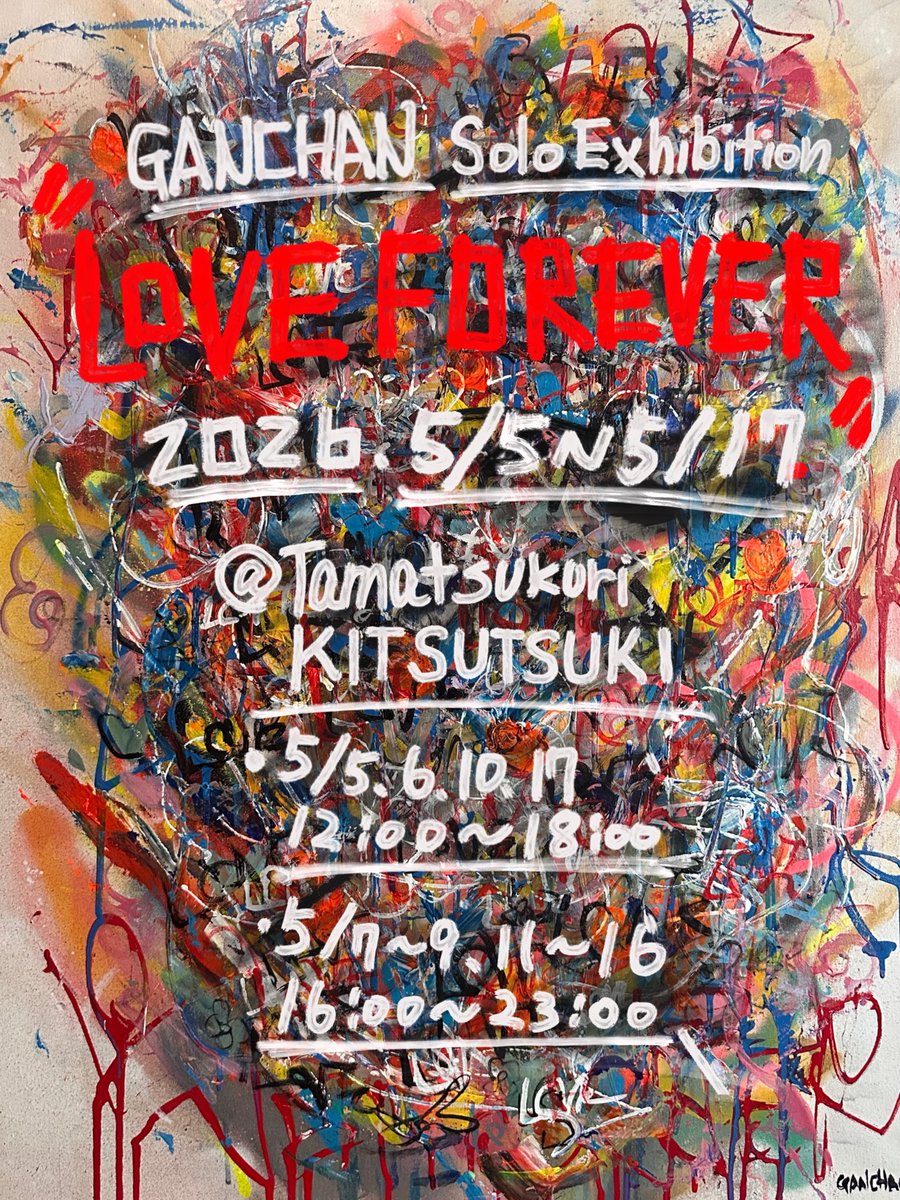 GANCHAN Solo Exhibition
"LOVE FOREVER"
2026.5/5~5/17
@Tamatsukuri
KITSUTSUKI
・5/5.6.10.17
12:00~18:00
・5/7~9.11~16
16:00~23:00
GANCHA